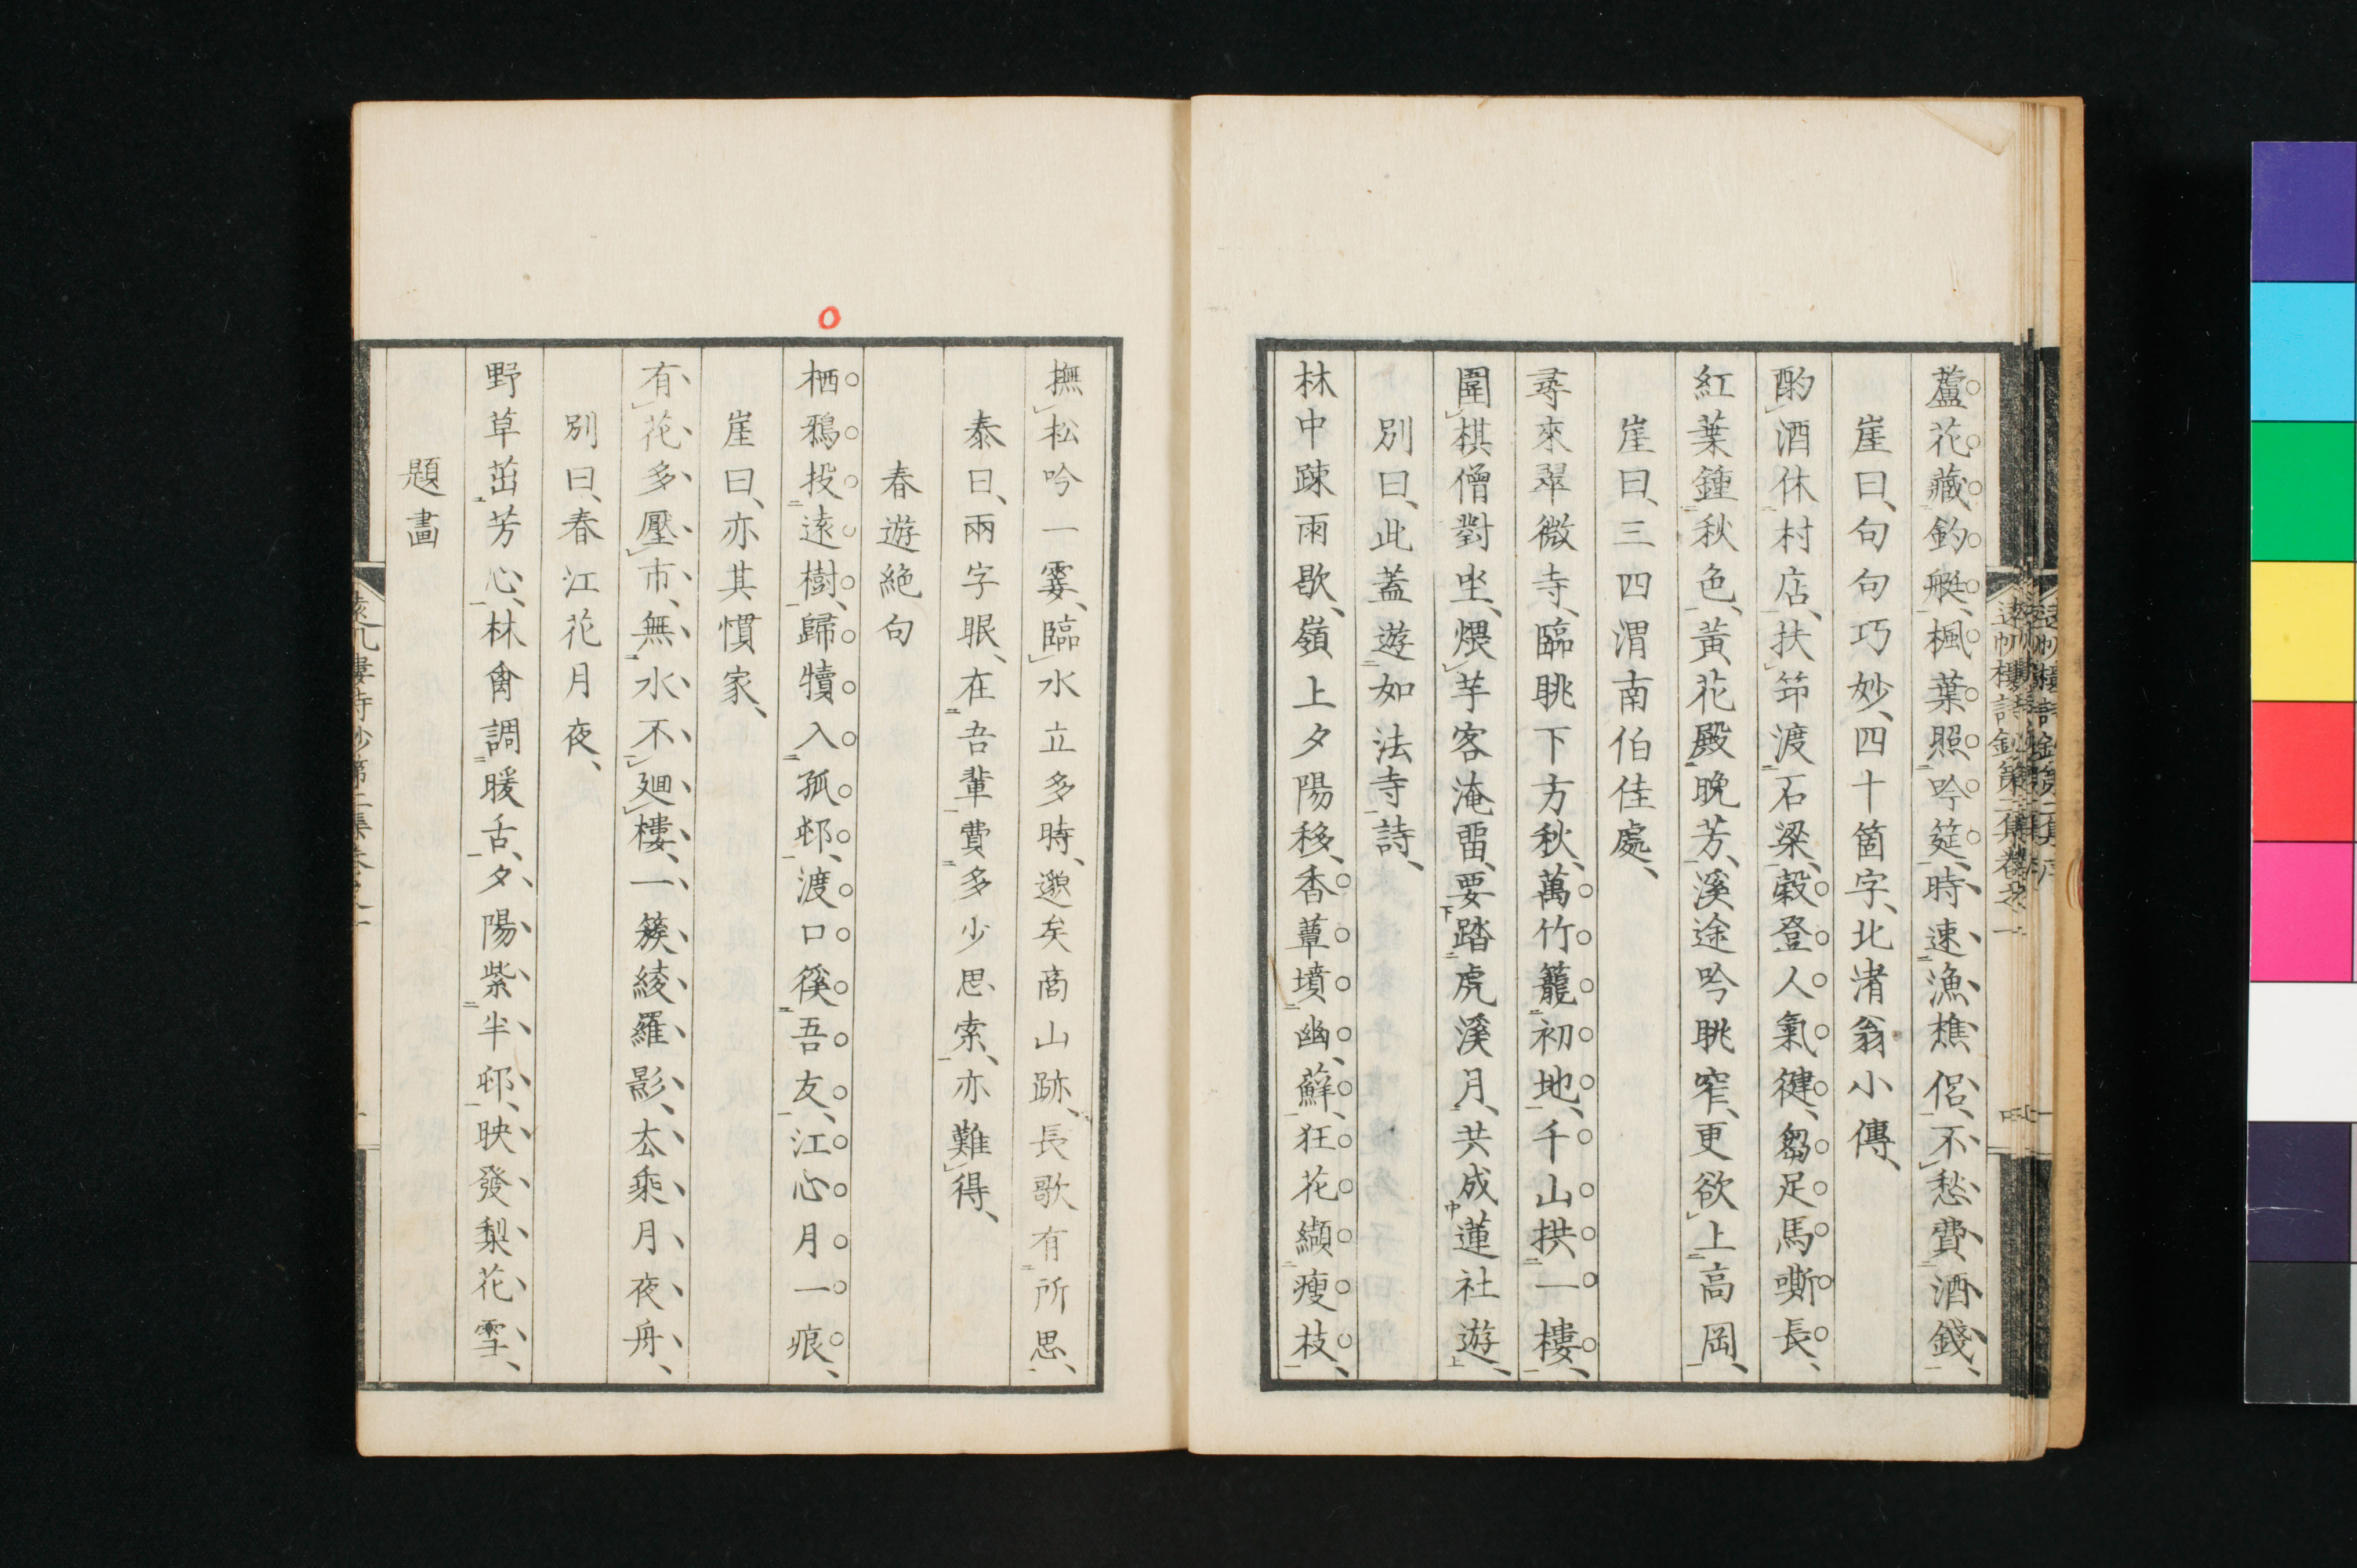 蘆花藏釣艇、楓葉照吟筵、時速漁樵侶、不愁費酒錢、
崖曰、句句巧妙、四十箇字、北渚翁小傳、
酌酒休村店、扶筇渡石梁、穀登人氣健、芻足馬嘶長、
紅葉鍾秋色、黃花殿晚芳、溪途吟眺窄、更欲上高岡、
崖曰、三四渭南伯佳處、
尋來翠微寺、臨眺下方秋、萬竹籠初地、千山拱一樓、
圍棋僧對坐、煨芋客淹畱、要踏虎溪月、共成蓮社遊、
別曰、此蓋遊如法寺詩、
林中踈雨歇、嶺上夕陽移、香蕈墳幽蘚、狂花纈瘦枝、
撫松吟一霎、臨水立多時、邈矣商山跡、長歌有所思、
泰曰、兩字眼、在吾輩費多少思索、亦難得、
春遊絕句
栖鴉投遠樹、歸犢入孤邨、渡口徯吾友、江心月一痕、
崖曰、亦其慣家、
有花多壓市、無水不廻樓、一簇綾羅影、太乘月夜舟、
別曰、春江花月夜、
野草茁芳心、林禽調暖舌、夕陽紫半邨、映發梨花雪、
題畫